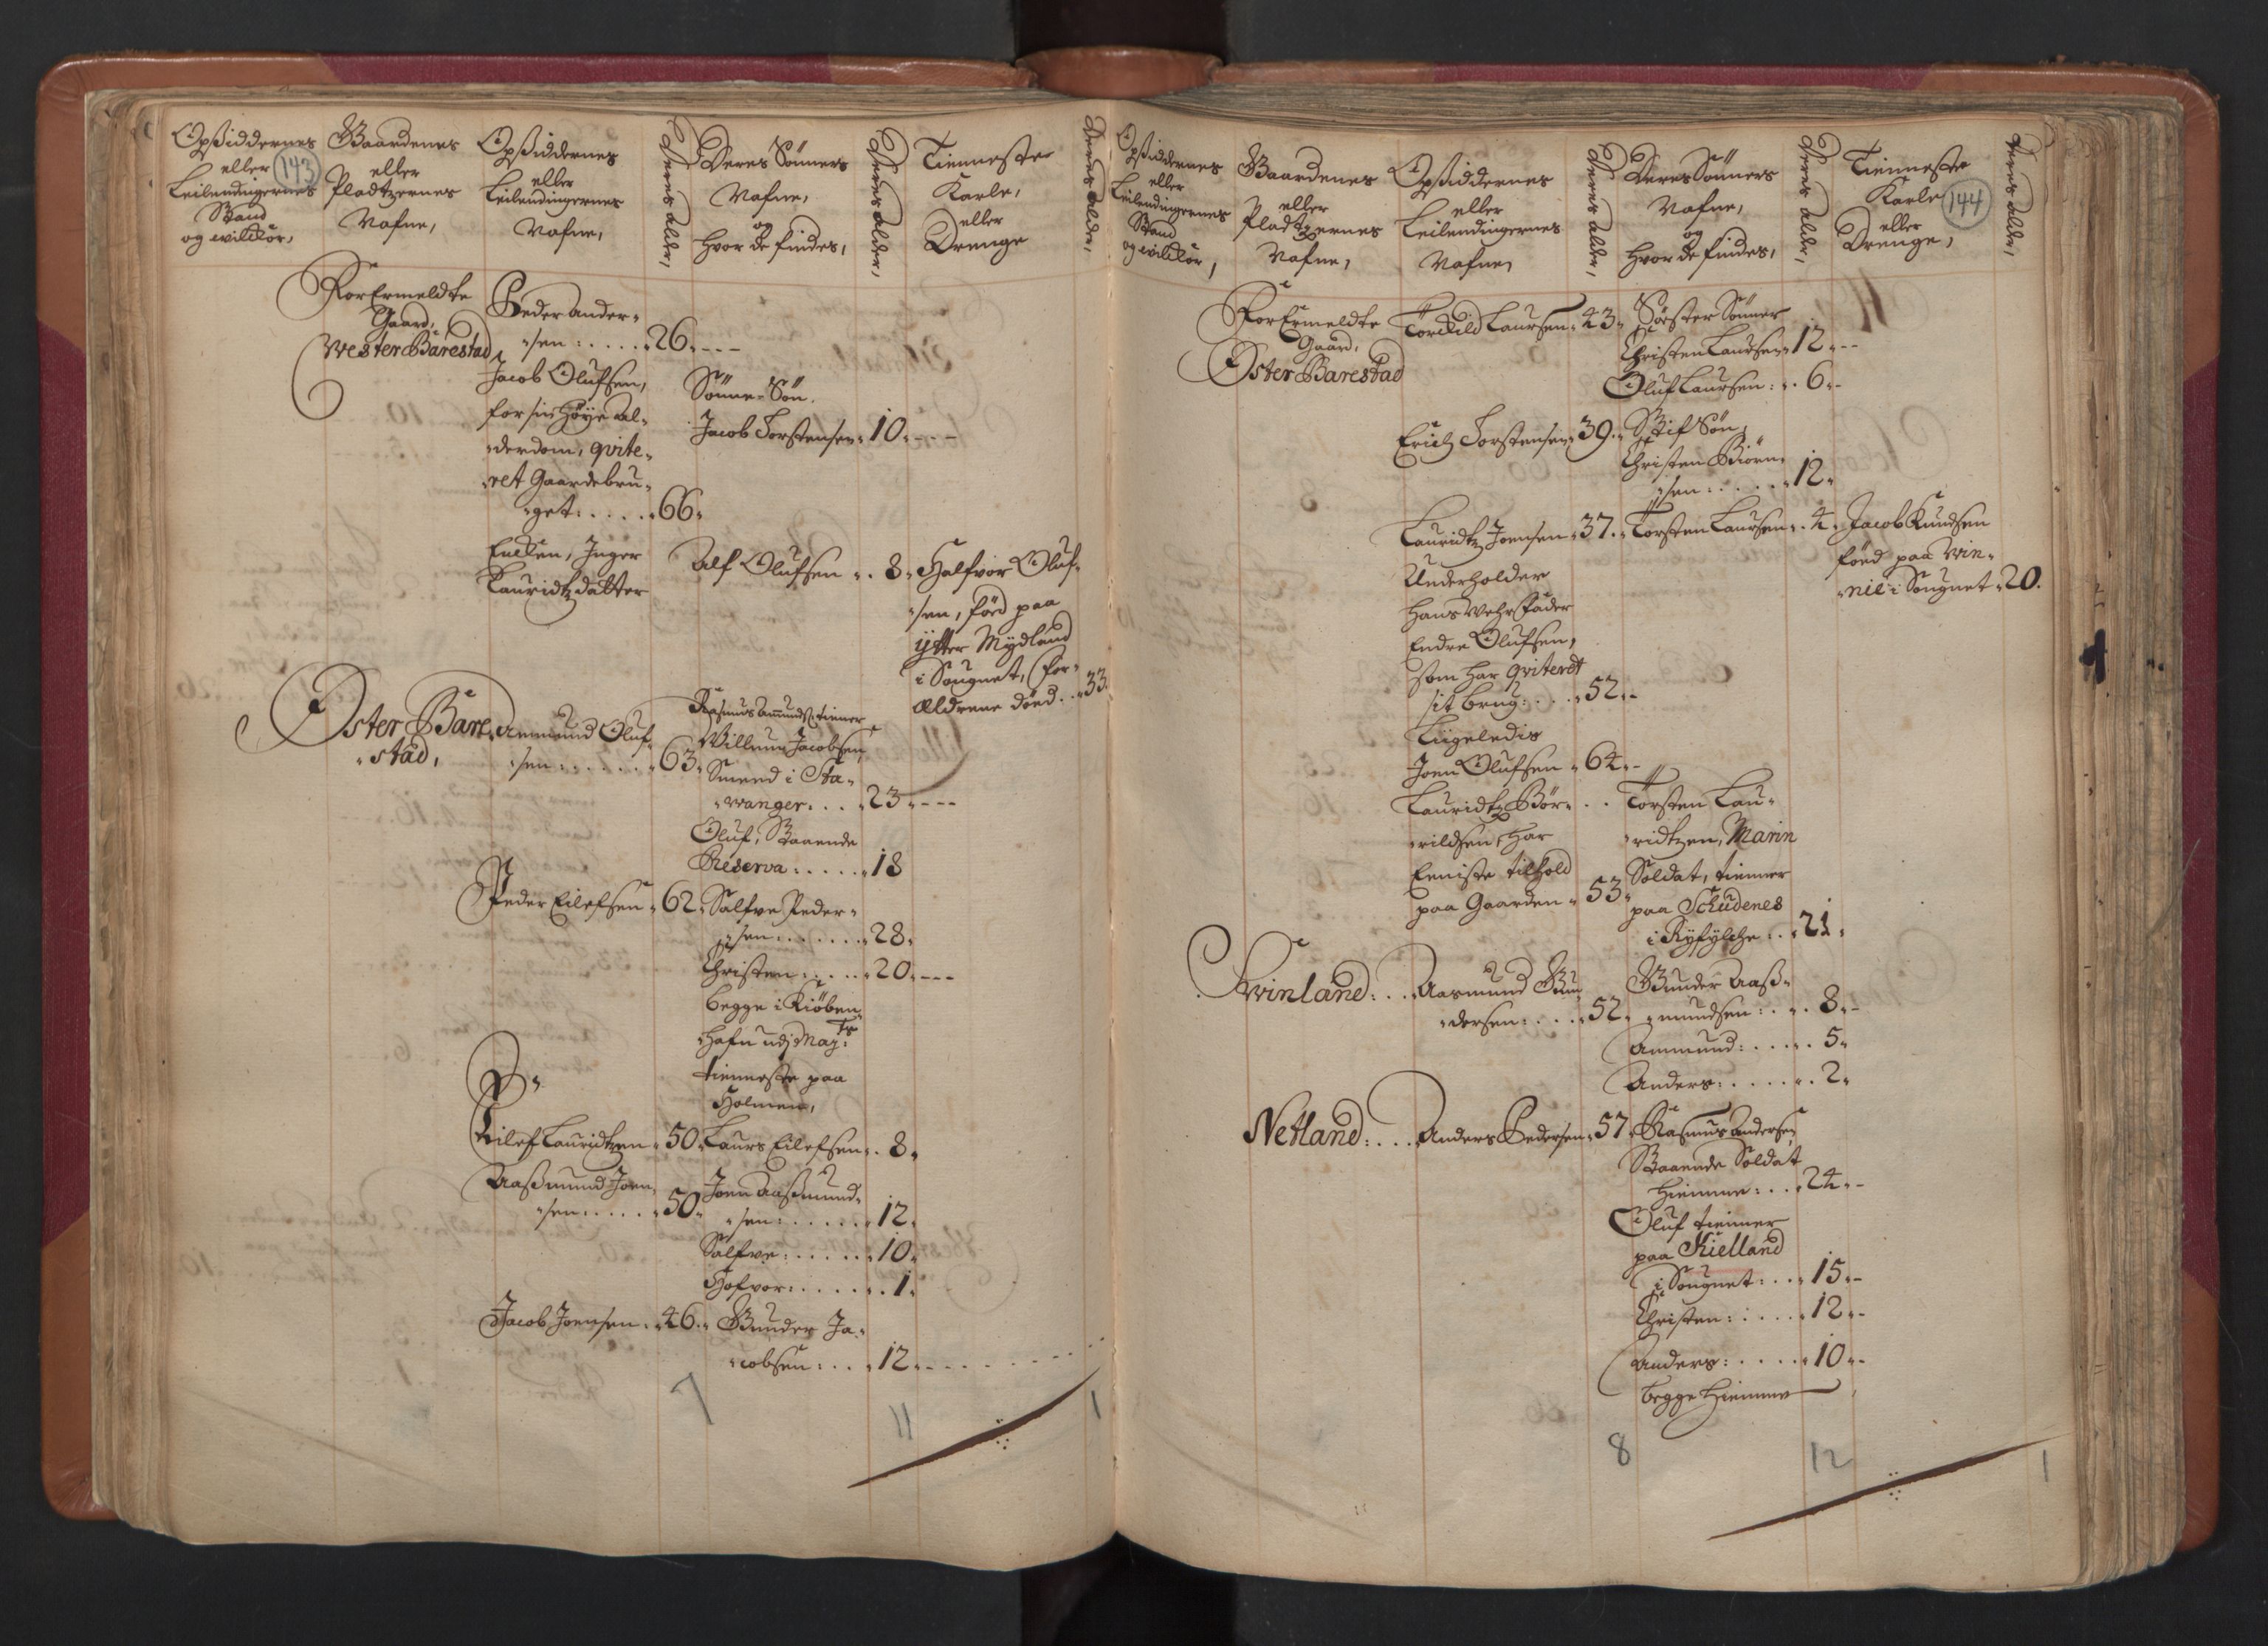 Opsiddernes
eller
Leilendingernes
Stand
og wilckor,
143
Gaardenes
eller
Pladtzernes
Nafne,
Opsiddernes
eller
Leilendingernes
Nafne,
Deres alder,
Deres Sönners
Nafne,
og
hvor de findes,
Deres alder,
Tienneste
Karle,
eller
Drenge
Deres alder,
For Ermeldte
Gaard,
Wester Bärestad
Peder Ander„
„sen: . . . . „26„---
Jacob Olufsen,
for sin höye al„
„derdom, qvite„
„ret Gaardebru„
„get: . . . . „66„
Sönne-Sön.
Jacob Torstensen„10„---
Encken, Inger
Lauridtzdatter
Alf Olufsen „. 8„
Halfvor Oluf„
„sen, föd paa
ÿtter Mydland
i Sougnet, for„
Ældrene död. . „33.
Öster Bäre„
„stad,
Ammund Oluf„
„sen: . . . . . „63„
Rasmus Ammunds: tiener
Willum Jacobsen,
Smed i Sta„
„wanger. . . „23„---
Oluf, Staaende
Reserva: . . . . „18
Peder Eilefsen „62„
Salfve Peder„
„sen: . . . . . „28„
Christen: . . . . „20„---
begge i Kiöben„
„hafn udj Maÿ:ts
tienneste paa
Holmen,
Eilef Lauridtzen „50„
Laurs Eilefsen„. 8„
Aassmund Joen„
„sen: . . . . „50„
Joen Aassmund„
„sen: . . . . . „12„
Salfve: . . . . . „10„
Hofvor: . . . . . „. 1„
Jacob Joensen . „46„
Gunder Ja„
„cobsen: . . . „12„------
7
11
1
Opsiddernes
eller
Leilendingernes
Stand
og wilckor,
Gaardenes
eller
Pladtzernes
Nafne,
Opsiddernes
eller
Leilendingernes
Nafne,
Deres alder,
Deres Sönners
Nafne,
og
hvor de findes,
Deres alder,
Tienneste
Karle
eller
Drenge,
144
Deres alder,
For Ermeldte
Gaard,
Öster Barestad
Torckild Laursen„43„
Söster Sönner
Christen Laursen„12„--
Oluf Laursen: „. 6„-
Erich Torstensen„39„
Stif Sön,
Christen Biörn„
„sen: . . . . . „12„
Lauridtz Joensen„37„
Torsten Laursen„. 4„
Jacob Knudsen
föed paa Win„
„nie i Sougnet„20.
Underholder
Hans Vehr Fader
Endre Olufsen,
som har qviteret
sit brug: . . . „52„-
Ligeledis
Joen Olufsen „64„-
Lauridtz Bör„ . .
„rildsen, har
Eeniste tilhold
paa Gaarden „53„
Torsten Lau„
„ridtzen, Marin
Soldat, tienner
paa Schudenes
i Ryfylche: . „21„
Svinland: . .
Aasmund Gun„
„dersen: . . . „52„
Gunder Aass„
„mundsen: . „. 8„-
Ammund: . . . „. 5„
Anders: . . . . „. 2„
Netland: . . .
Anders Pedersen„57„
Rasmus Andersen
Staaende Soldat
hiemme: . . „24„-
Oluf tienner
paa Kielland
i Sougnet: . . „15„-
Christen: . . . . „12„-
Anders: . . . . „10„-
begge hiemme
8
12
1